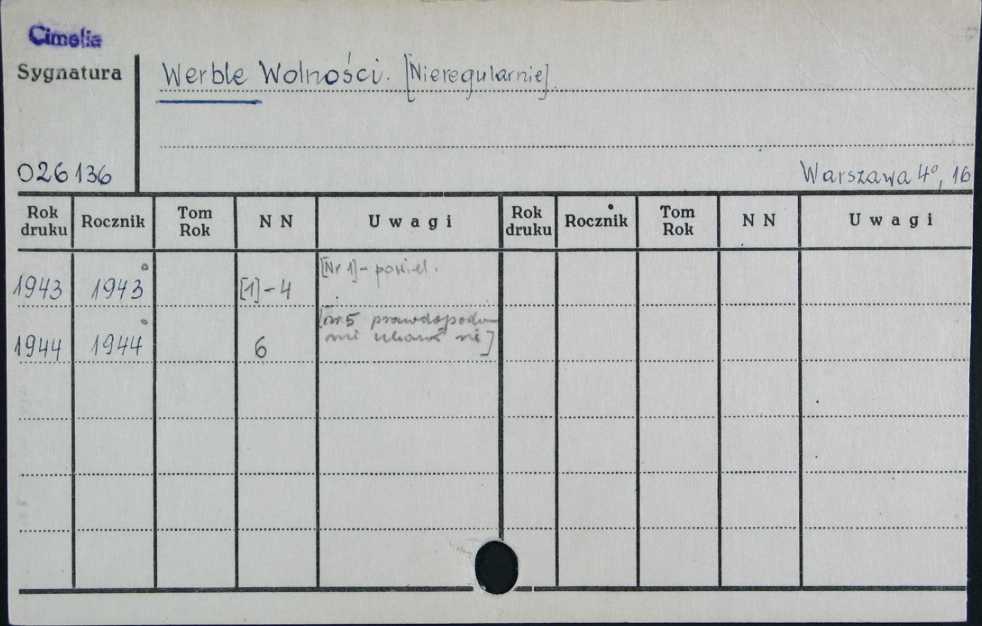 Cimelia
Sygnatura
Werble Wolności. [Nieregularnie].
026136
Warszawa 4°, 16
Rok druku Rocznik Tom Rok NN Uwagi Rok druku Rocznik Tom Rok NN Uwagi
1943 1943° [1]-4 [Nr 1]- powiel.
1944 1944° 6 [nr 5 prawdopodobnie
nie się]